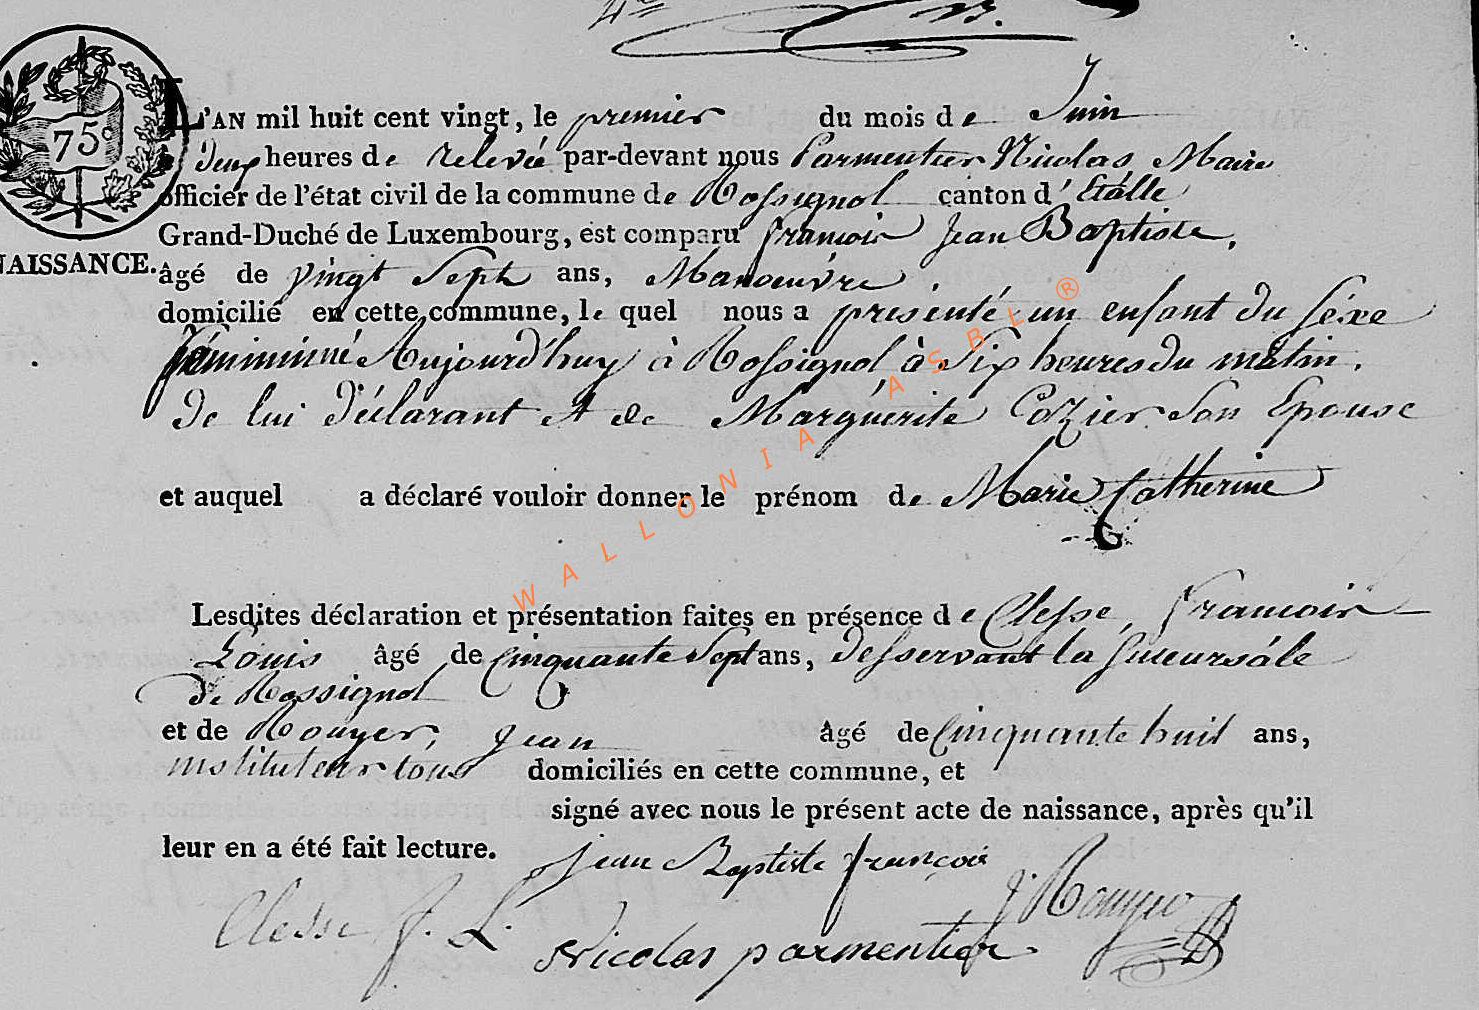 75c
NAISSANCE.
L'AN mil huit cent vingt, le premier du mois de Juin
à deux heures de relevée par-devant nous Parmentier Nicolas Maire
officier de l'état civil de la commune de Rossignol canton d'Etalle
Grand-Duché de Luxembourg, est comparu francois Jean Baptiste,
âgé de vingt Sept ans, Manoeuvre
domicilié en cette commune, le quel nous a présenté un enfant du séxe
féminimine Aujourd'huy à Rossignol à Six heures du matin,
de lui déclarant et de Marguérite Cozier Son Epouse
et auquel a déclaré vouloir donner le prénom de Marie Catherine
Lesdites déclaration et présentation faites en présence de Clesse, francois
Louis âgé de Cinquante Sept ans, desservant la Succursále
de Rossignol
et de Rouyer, Jean âgé de Cinquante huit ans,
instituteur tous domiciliés en cette commune, et
signé avec nous le présent acte de naissance, après qu'il
leur en a été fait lecture.
jean Baptiste françois
J. Rouyer
Clesse f. L.
Nicolas parmentier
WALLONIA ASBL ®